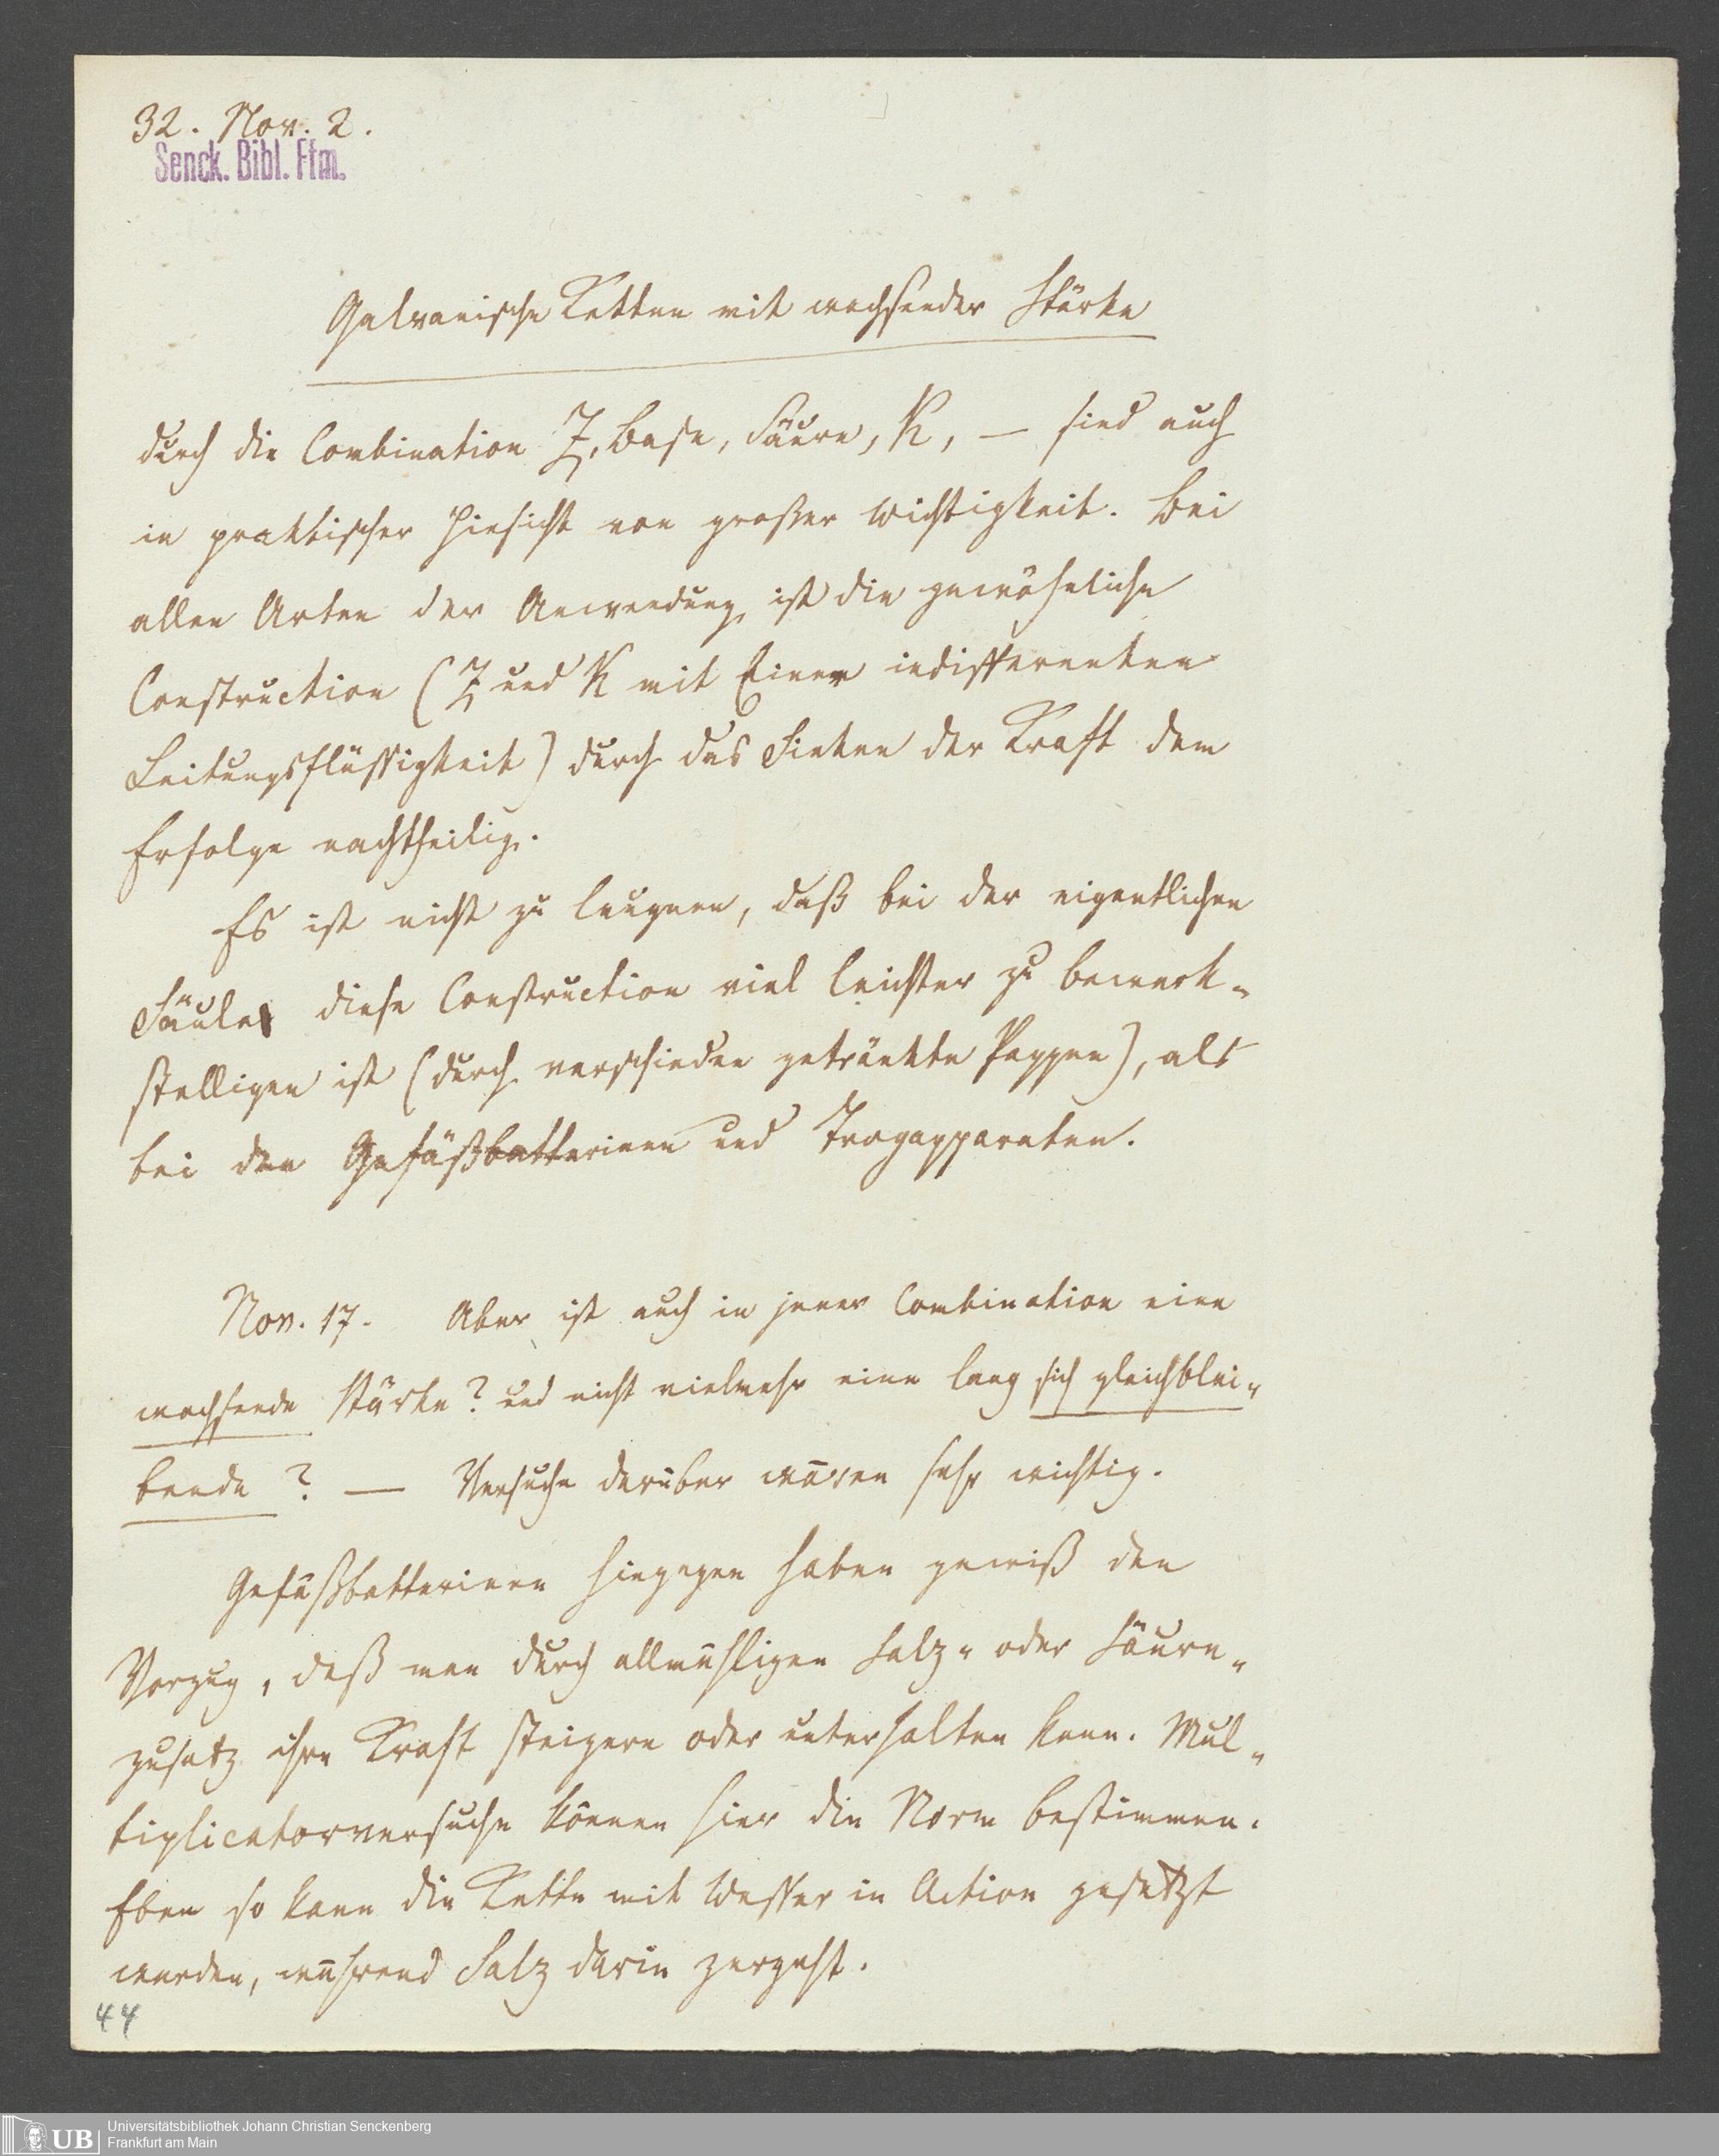 32. Nov. 2.
Senck. Bibl. Ffm.
Galvanische Ketten mit wachsender Stärke
durch die Combination Z, Base, Säure, K, — sind auch
in praktischer Hinsicht von großer Wichtigkeit. Bei
allen Arten der Anwendung ist die gewöhnliche
Construction (Z und K mit Einer indifferenten
Leitungsflüssigkeit) durch das Sinken der Kraft dem
Erfolge nachtheilig.
Es ist nicht zu leugnen, daß bei der eigentlichen
Säule diese Construction viel leichter zu bewerk-
stelligen ist (durch verschieden getränkte Pappen), als
bei den Gefäßbatterieen und Trogapparaten.
Nov. 17. Aber ist auch in jener Combination eine
wachsende Stärke? und nicht vielmehr eine lang sich gleichblei-
bende? — Versuche darüber wären sehr wichtig.
Gefäßbatterieen hingegen haben gewiß den
Vorzug, daß man durch allmähligen Salz- oder Säure-
zusatz ihre Kraft steigern oder unterhalten kann. Mul-
tiplicatorversuche können hier die Norm bestimmen.
Eben so kann die Kette mit Wasser in Action gesetzt
werden, während Salz darin zergeht.
44
UB
Universitätsbibliothek Johann Christian Senckenberg
Frankfurt am Main